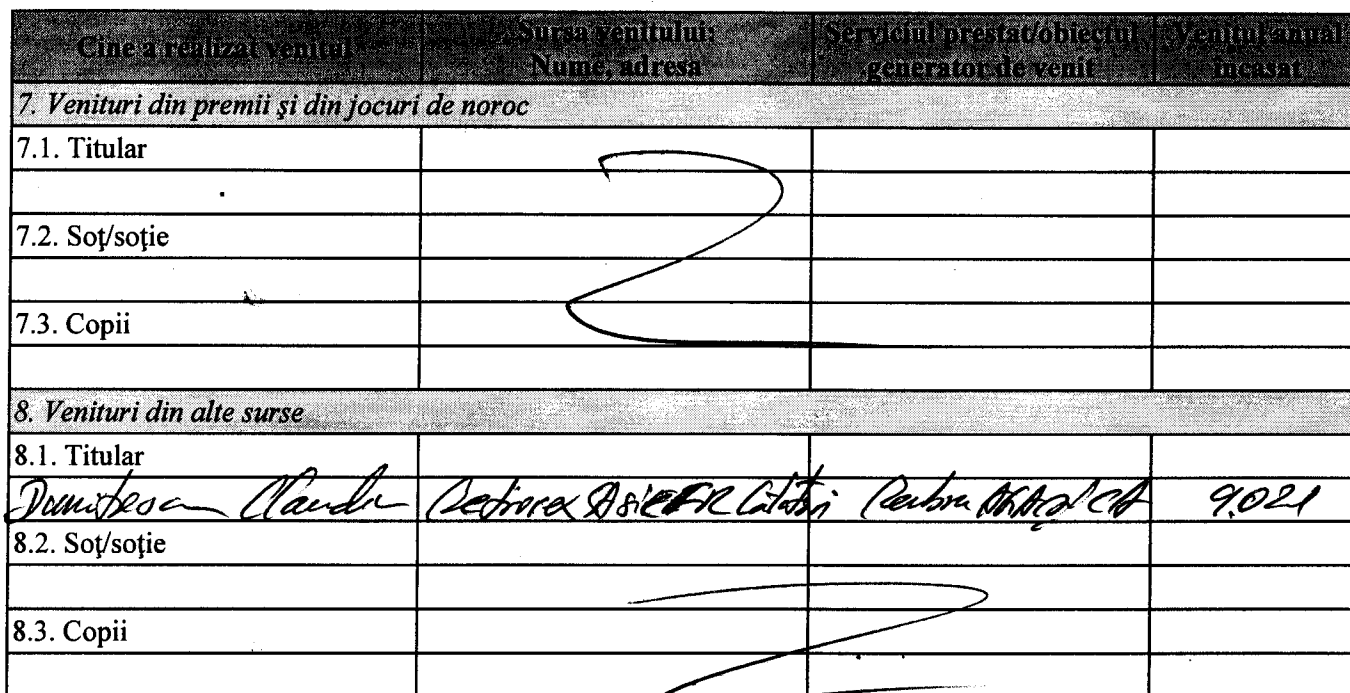 Cine a realizat venitul Sursa venitului: Nume, adresa Serviciul prestat/obiectul generator de venit Venitul anual încasat
7. Venituri din premii şi din jocuri de noroc
7.1. Titular
7.2. Soţ/soţie
7.3. Copii
8. Venituri din alte surse
8.1. Titular
Dumitrescu 9.021
8.2. Soţ/soţie
8.3. Copii